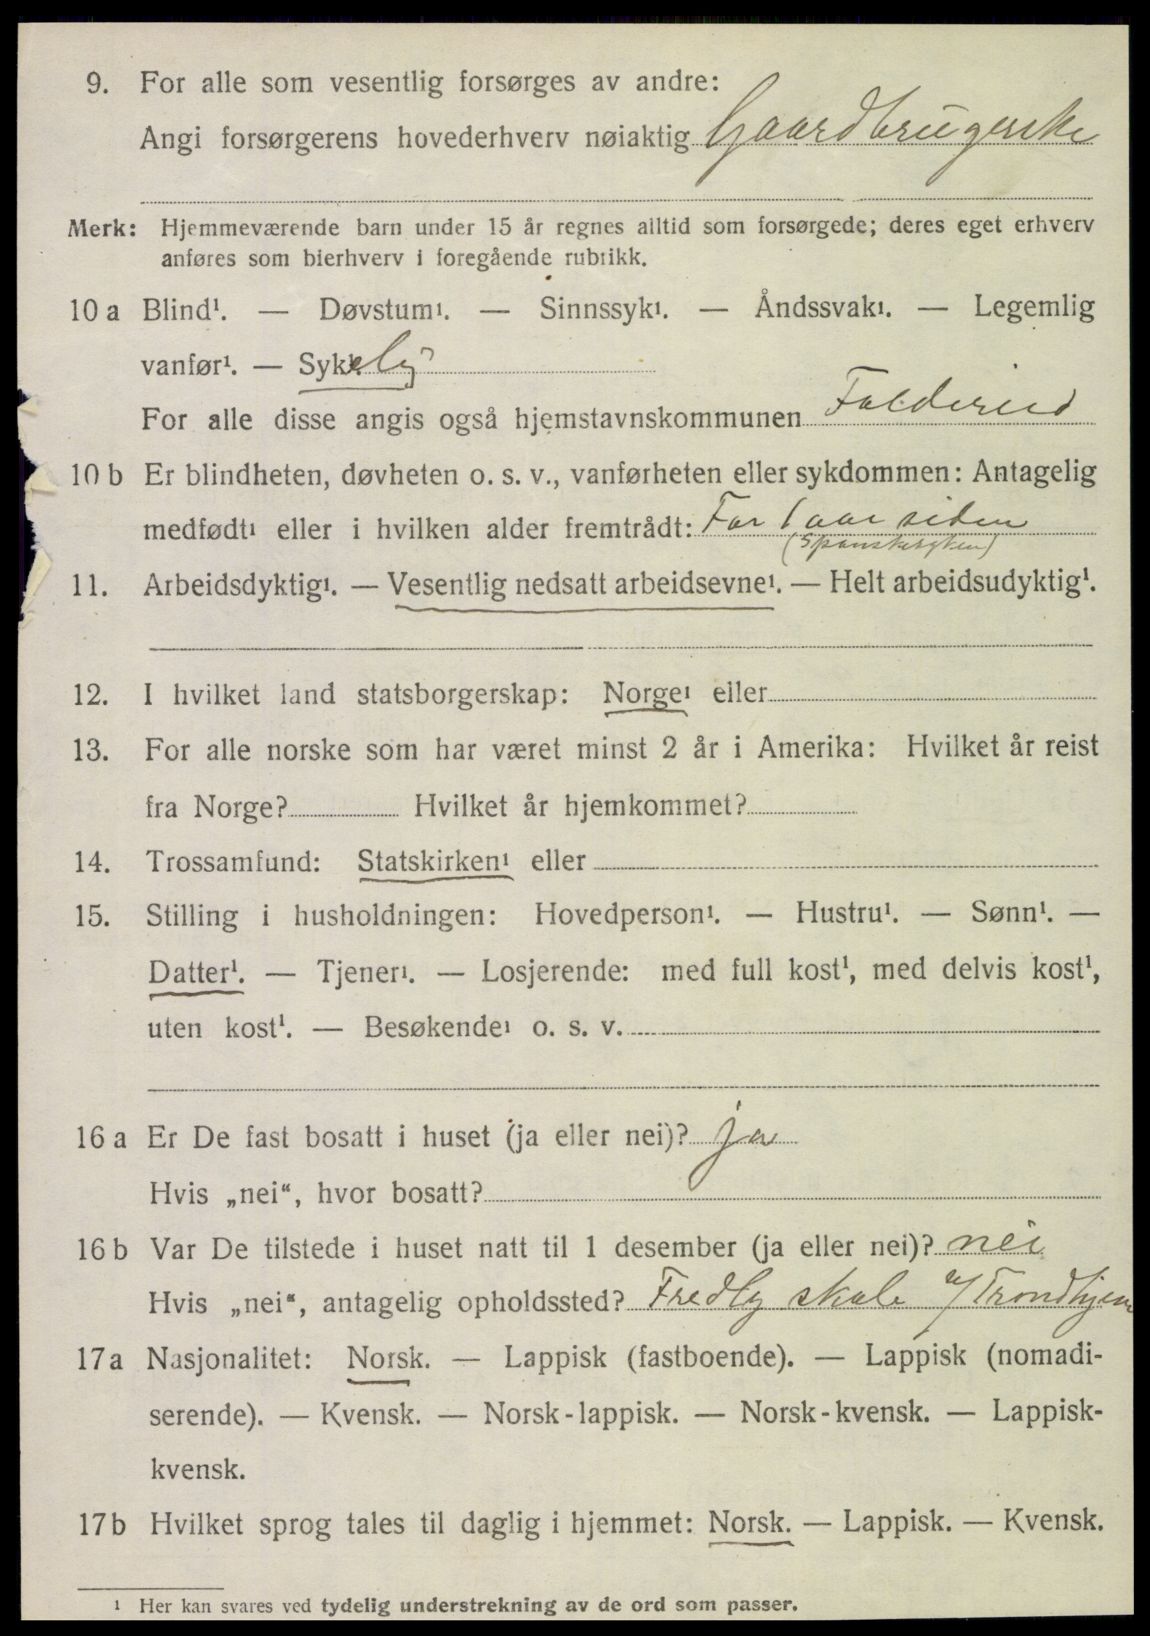 9. For alle som vesentlig forsørges av andre:
Angi forsørgerens hovederhverv nøiaktig Gaardbrugerske
Merk: Hjemmeværende barn under 15 år regnes alltid som forsørgede; deres eget erhverv
anføres som bierhverv i foregående rubrikk.
10 a Blind¹. — Døvstum¹. — Sinnssyk¹. — Åndssvak¹. — Legemlig
vanfør¹. — Sykely
For alle disse angis også hjemstavnskommunen Foldereid
10 b Er blindheten, døvheten o. s. v., vanførheten eller sykdommen: Antagelig
medfødt¹ eller i hvilken alder fremtrådt: For 1 aar siden
(Spanskesyken)
11. Arbeidsdyktig¹. — Vesentlig nedsatt arbeidsevne¹. — Helt arbeidsudyktig¹.
12. I hvilket land statsborgerskap: Norge¹ eller
13. For alle norske som har været minst 2 år i Amerika: Hvilket år reist
fra Norge? Hvilket år hjemkommet?
14. Trossamfund: Statskirken¹ eller
15. Stilling i husholdningen: Hovedperson¹. — Hustru¹. — Sønn¹. —
Datter¹. — Tjener¹. — Losjerende: med full kost¹, med delvis kost¹,
uten kost¹. — Besøkende¹ o. s. v.
16 a Er De fast bosatt i huset (ja eller nei)? ja
Hvis „nei“, hvor bosatt?
16 b Var De tilstede i huset natt til 1 desember (ja eller nei)? nei
Hvis „nei“, antagelig opholdssted? Fredly skole v/ Trondhjem
17 a Nasjonalitet: Norsk. — Lappisk (fastboende). — Lappisk (nomadi-
serende). — Kvensk. — Norsk-lappisk. — Norsk-kvensk. — Lappisk-
kvensk.
17 b Hvilket sprog tales til daglig i hjemmet: Norsk. — Lappisk. — Kvensk.
¹ Her kan svares ved tydelig understrekning av de ord som passer.